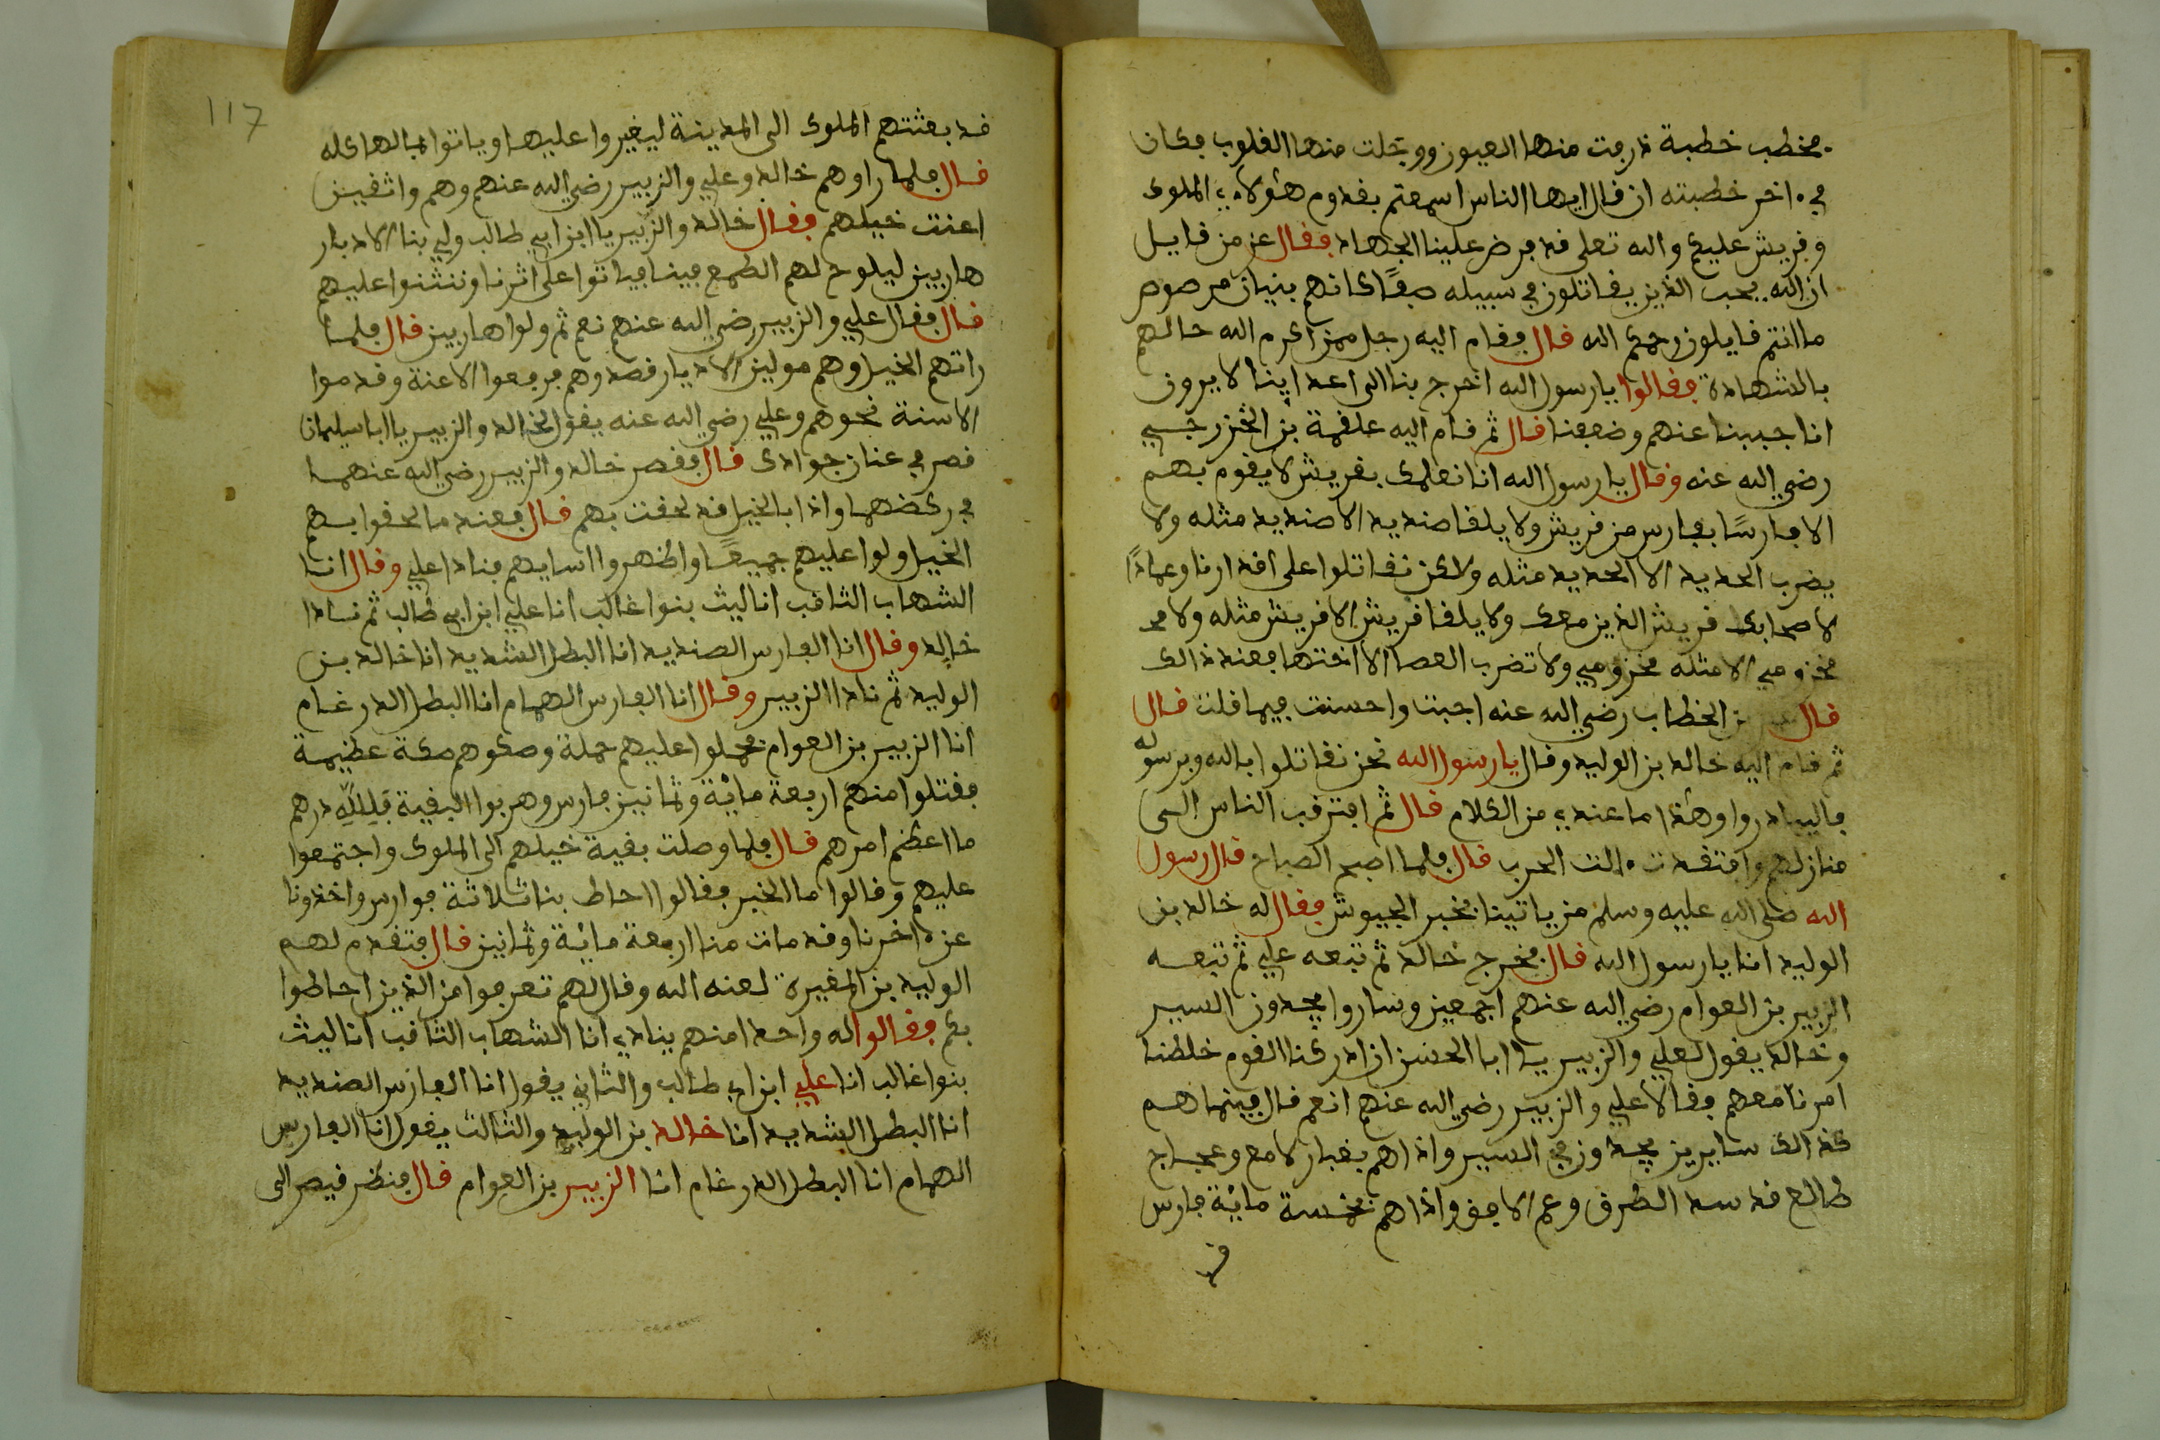 فخطب خطبة ذرفت منها العيون ووجلت منها القلوب فكان
في ءاخر خطبته ان قال ايها الناس اسمعتم بقدوم هؤلاء الملوك
وقريش عليكم والله تعلى قد فرض علينا الجهاد فقال عز من قايل
ان الله يحب الذين يقاتلون في سبيله صفًا كانهم بنيان مرصوص
ما انتم قايلون رحمكم الله قال فقام اليه رجل ممن اكرم الله حالهم
بالشهادة فقالوا يا رسول الله اخرج بنا الى اعداينا لا يرون
انا جبنا عنهم وضعفنا قال ثم قام اليه علقمة بن الخزرجي
رضي الله عنه وقال يا رسول الله انا نعلمك بقريش لا يقوم بهم
الا فارسًا بفارس من قريش ولا يلقا صنديد الا صنديد مثله ولا
يضرب الحديد الا الحديد مثله ولاكن نقاتلوا على اقدارنا وعمادًا
لاصحابك قريش الذين معك ولا يلقا قريش الا قريش مثله ولا مخ
مخزومي الا مثله مخزومي ولا تضرب العصا الا اختها فعند ذالك
قال عمر بن الخطاب رضي الله عنه اجبت واحسنت فيما قلت قال
ثم قام اليه خالد بن الوليد وقال يا رسول الله نحن نقاتلوا بالله وبرسوله
فاليبادروا وهذا ما عندي من الكلام قال ثم افترقت الناس الى
منازلهم وافتقدت ءالت الحرب قال فلما اصبح الصباح قال رسول
الله صلى الله عليه وسلم من ياتينا بخبر الجيوش فقال له خالد بن
الوليد انا يا رسول الله قال فخرج خالد ثم تبعه علي ثم تبعه
الزبير بن العوام رضي الله عنهم اجمعين وساروا يجدون السير
وخالد يقول لعلي والزبير يا ابا الحسن ان ادركنا القوم خلطنا
امرنا معهم فقالا علي والزبير رضي الله عنهم انعم قال فبينما هم
كذالك سايرين يجدون في السير واذا هم بغبار لامع وعجاج
طالع قد سد الطرق وعم الافق واذا هم خمسة مائة فارس
قد
117
قد بعثتهم الملوك الى المدينة ليغيروا عليها وياتوا بمالها كله
قال فلما راوهم خالد وعلي والزبير رضي الله عنهم وهم واثقين
اعنت خيلهم فقال خالد والزبير يا ابن ابي طالب ولي بنا الادبار
هاربين ليلوح لهم الطمع فينا فياتوا على اثرنا وننثنوا عليهم
قال فقال علي والزبير رضي الله عنهم نعم ثم ولوا هاربين قال فلما
راتهم الخيل وهم مولين الاديار قصدوهم فرفعوا الاعنة وقدموا
الاسنة نحوهم وعلي رضي الله عنه يقول لخالد والزبير يا ابا سليمان
قصر في عنان جوادك قال فقصر خالد والزبير رضي الله عنهما
في ركضهما واذا بالخيل قد لحقت بهم قال فعند ما لحقوا بهم
الخيل ولوا عليهم جميعًا واظهروا اسايهم فنادا علي وقال انا
الشهاب الثاقب انا ليث بنوا غالب انا علي ابن ابي طالب ثم نادا
خالد وقال انا الفارس الصنديد انا البطل الشديد انا خالد بن
الوليد ثم نادا الزبير وقال انا الفارس الهمام انا البطل الدرغام
انا الزبير بن العوام فحملوا عليهم حملة وصكوهم صكة عظيمة
فقتلوا منهم اربعة مائة وثمانين فارس وهربوا البقية فلله درهم
ما اعظم امرهم قال فلما وصلت بقية خيلهم الى الملوك واجتمعوا
عليهم وقالوا ما الخبر فقالوا احاط بنا ثلاثة فوارس واخذونا
عن ءاخرنا وقد مات منا اربعة مائة وثمانين قال فتقدم لهم
الوليد بن المغيرة لعنه الله وقال لهم تعرفوا من الذين احاطوا
بكم فقالوا له واحدا منهم ينادي انا الشهاب الثاقب انا ليث
بنوا غالب انا علي ابن ابي طالب والثاني يقول انا الفارس الصنديد
انا البطل الشديد انا خالد بن الوليد والثالث يقول انا الفارس
الهمام انا البطل الدرغام انا الزبير بن العوام قال فنظر قيصر الى